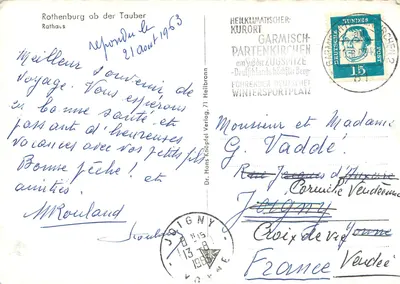 Rothenburg ob der Tauber
Rathaus
répondu le
21 août 1963
Meilleur souvenir de
voyage. Vous espérons
en bonne santé et
passant d'heureuses
vacances avec vos petits fils
Bonne pêche! et
amitiés!
MRouland
Dr. Hans Knöpfel Verlag, 71 Heilbronn
HEILKLIMATISCHER
KURORT
GARMISCH-
PARTENKIRCHEN
WINTERSPORTPLATZ
DEUTSCHE BUNDESPOST
15
Monsieur et Madame
G. Vaddé.
Rue Jacques d'Auxerre
Corniche Vendéenne
Joigny
Croix de vie Yonne
France Vendée
JOIGNY
13-8
YONNE